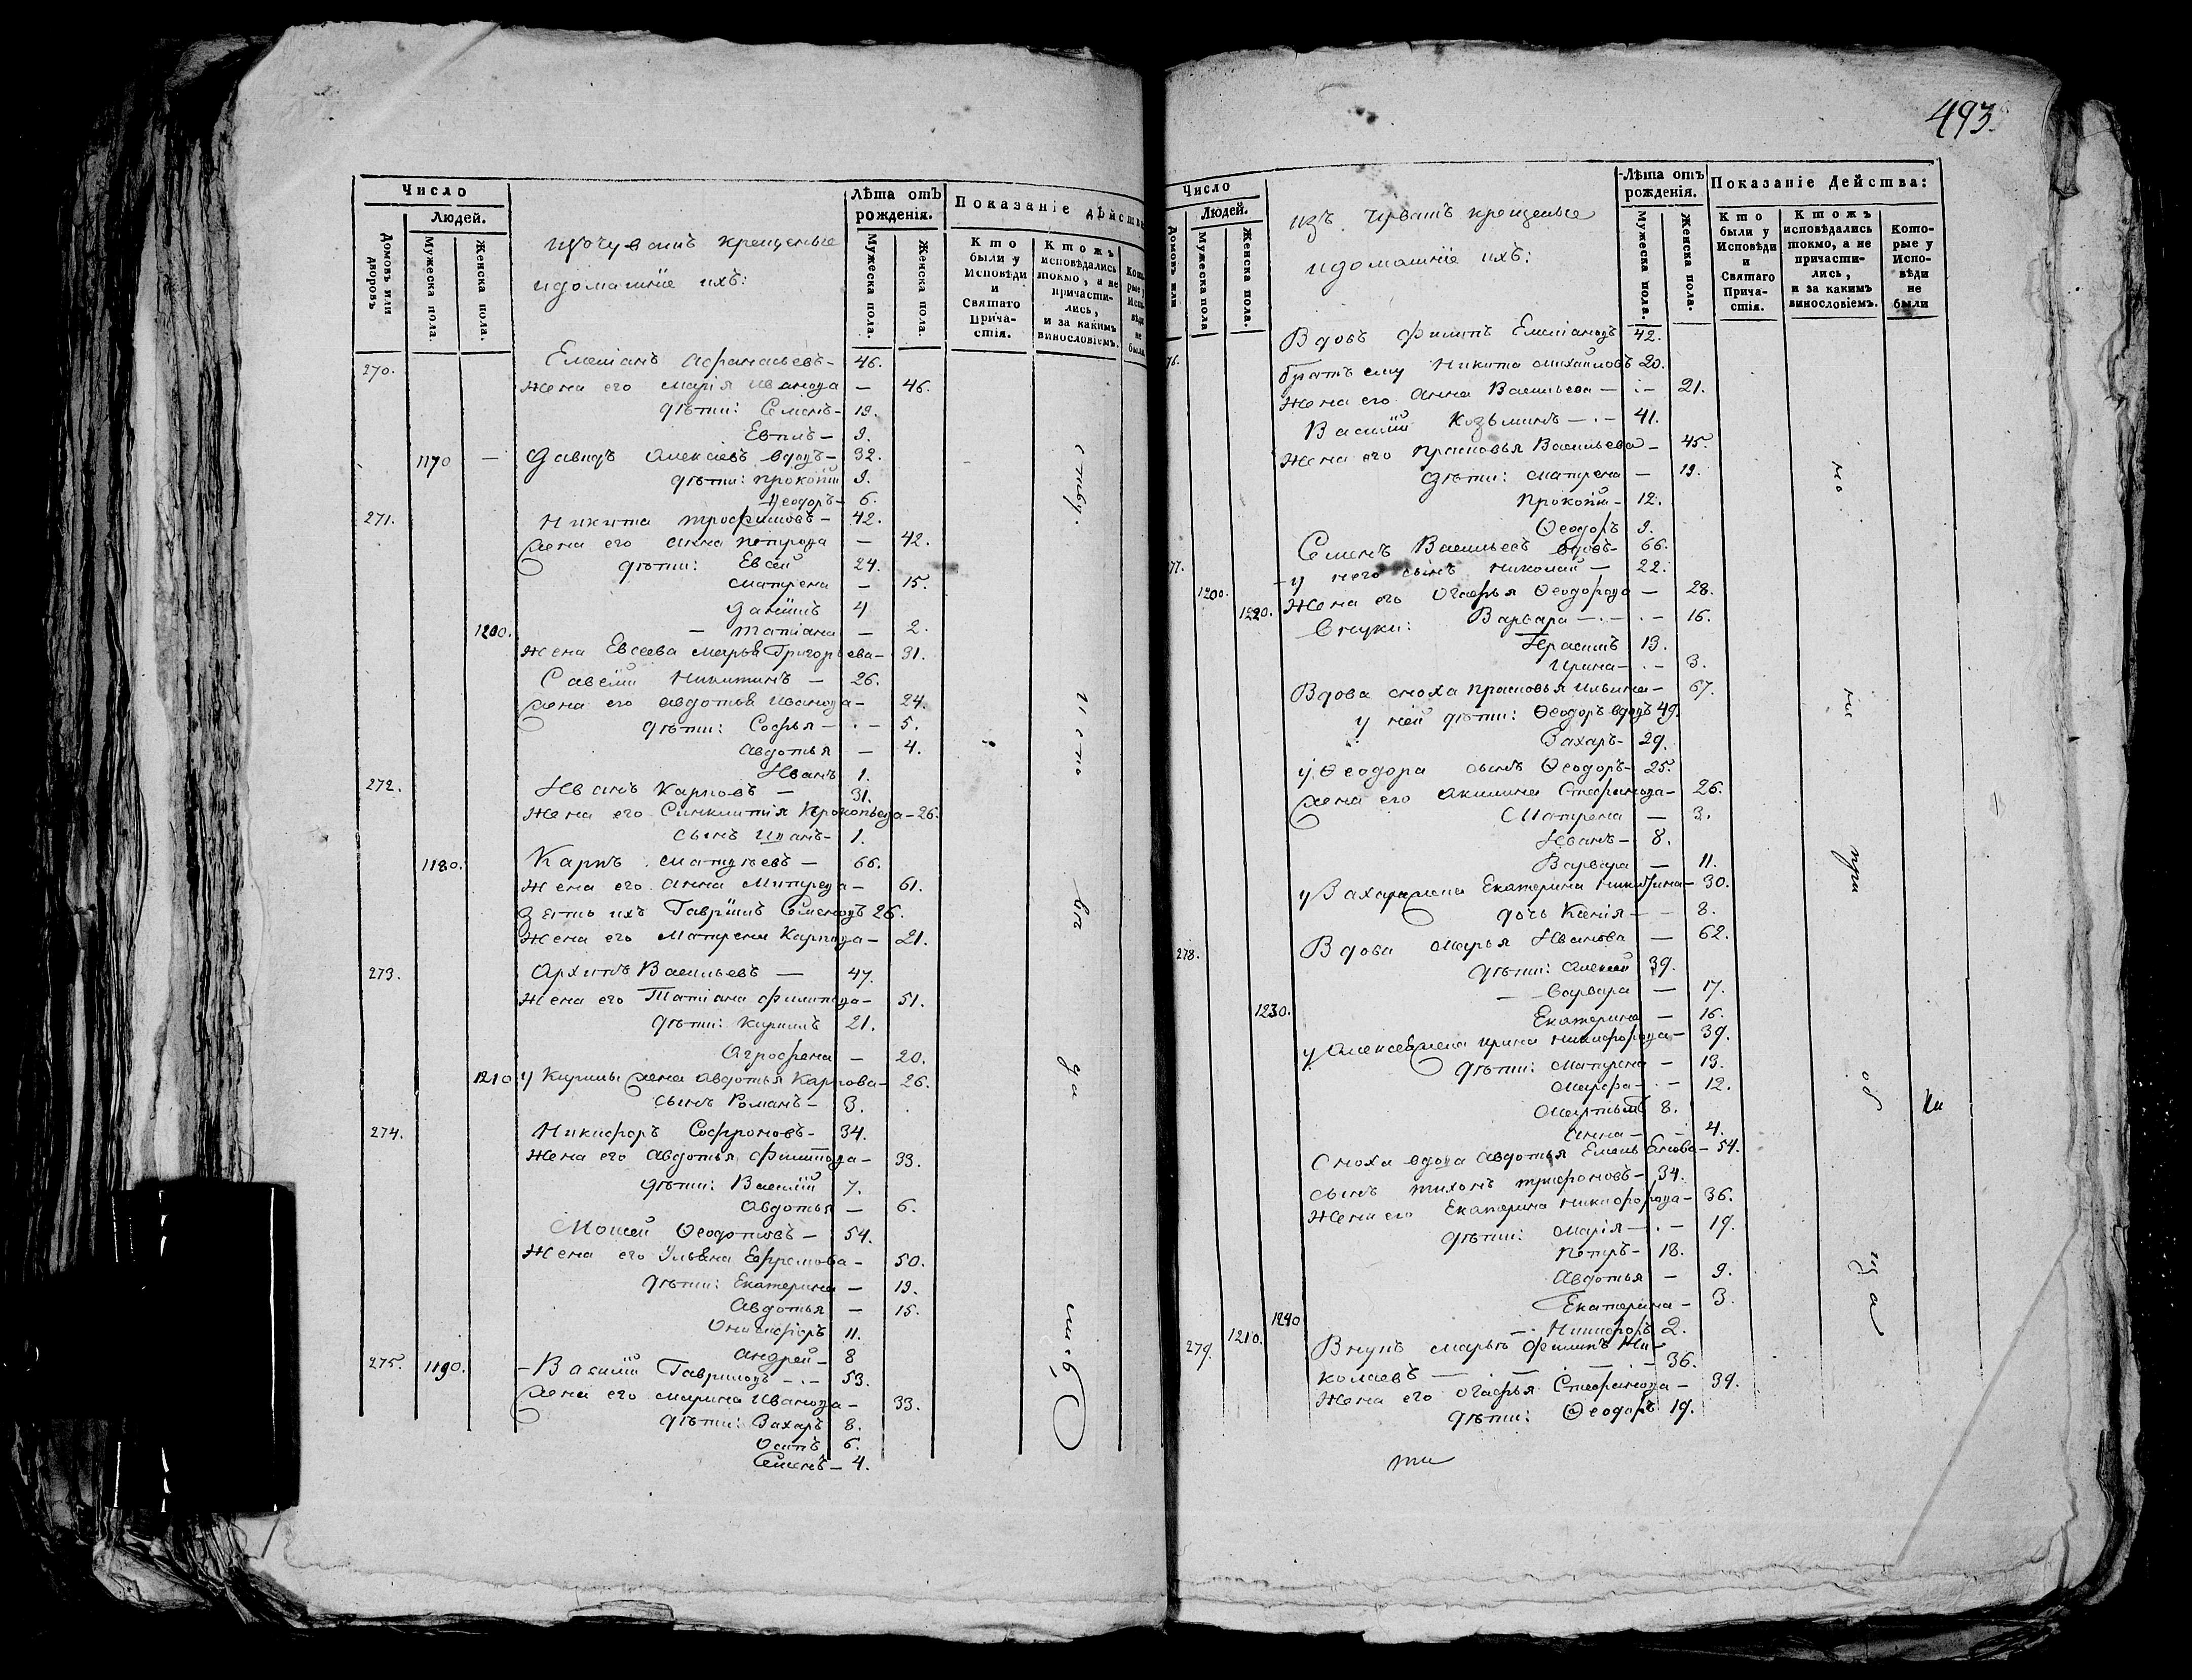 493.
Число
Людей.
Домовъ или дворовъ
Мужеска пола.
Женска пола.
изъ чувашъ крещеные
и домашніе ихъ:
Лѣта отъ рожденія.
Мужеска пола.
Женска пола.
Показаніе дѣйств
Кто были у Исповѣди и Святаго Прича-стія.
Ктожъ исповѣдались токмо, а не причасти-лись, и за какимъ винословіемъ.
270. Емеліанъ Афанасьевъ - 46.
Жена его Марія Иванова - 46.
дѣти: Семенъ - 19.
Евплъ - 9.
1170 - Давидъ Алексѣевъ вдовъ - 32.
дѣти: Прокопій 9.
Ѳеодоръ - 6.
271. Никита Трофимовъ - 42.
Жена его Анна Петрова - 42.
дѣти: Евсей 24.
Матрена - 15.
Даніилъ 4
1200. - Татіана - 2.
Жена Евсеева Марья Григорьева - 31.
Савелій Никитинъ - 26.
Жена его Авдотья Иванова - 24.
дѣти: Софья - 5.
Авдотья - 4.
Иванъ 1.
272. Иванъ Карповъ - 31.
Жена его Синклитія Прокопьева - 26.
сынъ Иванъ - 1.
1180. Карпъ Матвѣевъ - 66.
Жена его Анна Митрева - 61.
зять ихъ Гавріилъ Семеновъ 26.
Жена его Матрена Карпова - 21.
273. Архипъ Васильевъ - 47.
Жена его Татіана Филипова - 51.
дѣти: Кирилъ 21.
Агрофена - 20.
1210 у Кирилы жена Авдотья Карпова - 26.
сынъ Романъ - 3.
274. Никифоръ Софроновъ - 34.
Жена его Авдотья Филипова - 33.
дѣти: Василій 7.
Авдотья - 6.
Моисей Ѳеодотовъ - 54.
Жена его Ульяна Ефремова - 50.
дѣти: Екатерина - 19.
Авдотья - 15.
Онисифоръ 11.
Андрей - 8
275. 1190. - Василій Гавриловъ - 53.
Жена его Марина Иванова - 33.
дѣти: Захаръ 8.
Осипъ 6.
Семенъ - 4.
Число
Людей.
Домовъ или
Мужеска пола
Женска пола.
изъ Чувашъ крещеные
и домашніе ихъ:
Лѣта отъ рожденія.
Мужеска пола.
Женска пола.
Показаніе Дейсшва:
Кто были у Исповѣди и Святаго Прича-стія.
Ктожъ исповѣдались токмо, а не причасти-лись, и за какимъ винословіемъ.
Кото-рые у Испо-вѣди не были
Вдовъ Филипъ Емеліановъ 42.
76. братъ ему Никита Михайловъ 20.
Жена его Анна Васильева - 21.
Василій Козьминъ - 41.
Жена его Прасковья Васильева - 45.
дѣти: Матрена - 19.
Прокопій - 12.
Ѳеодоръ 9.
77. Семенъ Васильевъ вдовъ - 66.
1200. - у него сынъ Николай - 22.
1220. Жена его Огафья Ѳеодорова - 28.
Внуки: Варвара - 16.
Герасимъ 13.
Ирина - 3.
Вдова сноха Прасковья Ильина - 67.
у ней дѣти: Ѳеодоръ вдовъ 49.
Захаръ - 29.
у Ѳеодора сынъ Ѳеодоръ - 25.
Жена его Акилина Стефанова - 26.
Матрена - 3.
Иванъ - 8.
Варвара - 11.
у Захара жена Екатерина Никитина - 30.
дочь Ксенія - 8.
278. Вдова Марья Иванова - 62.
дѣти: Алексей 39.
- Варвара - 17.
1230. Екатерина - 16.
у Алексея жена Ирина Никифорова - 39.
дѣти: Матрена - 13.
Марфа - 12.
Мартынъ 8.
Анна - 4.
Сноха вдова Авдотья Емельянова - 54.
сынъ Тихонъ Трифоновъ - 34.
Жена его Екатерина Никифорова - 36.
дѣти: Марія - 19.
Петръ - 18.
Авдотья - 9.
Екатерина - 3.
1240 - Никифоръ 2.
279. 1210. Внукъ Марьѣ Филипъ Ни-
колаевъ - 36.
Жена его Огафья Стефанова - 39.
дѣти: Ѳеодоръ 19.